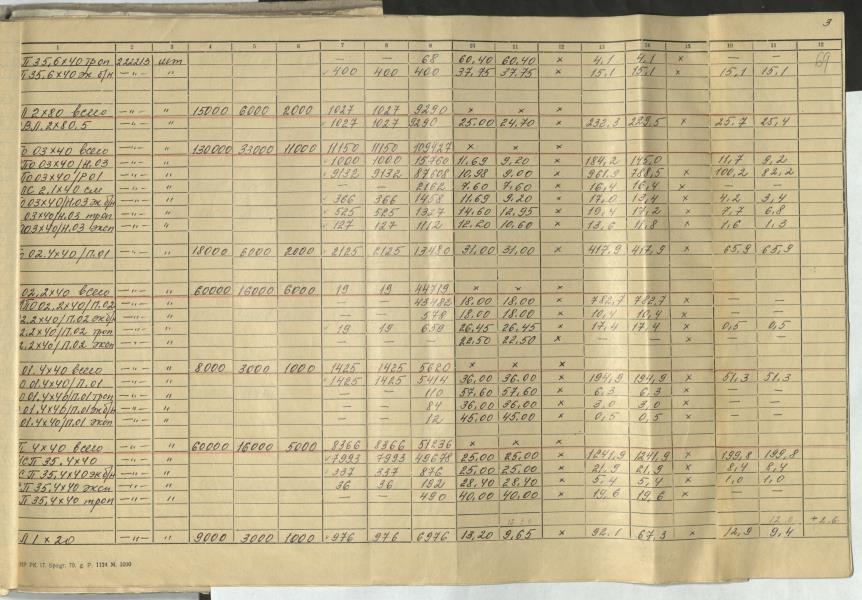 3
1 2 3 4 5 6 7 8 9 10 11 12 13 14 15 10 11 12
П 35,6×40 троп 222213 шт — — 68 60.40 60.40 × 4,1 4,1 × — — 69
П 35,6×40 эк б/н —"— " 400 400 400 37.75 37.75 × 15,1 15,1 × 15,1 15,1
Л 2×80 всего —"— " 15000 6000 2000 1027 1027 9290 × × ×
ВЛ.2×80.5 —"— " 1027 1027 9290 25.00 24.70 × 232,3 229,5 × 25,7 25,4
По 03×40 всего —"— " 130000 33000 11000 11150 11150 109427 × × ×
По 03×40/Н.03 —"— " 1000 1000 15760 11.69 9.20 × 184,2 145,0 11,7 9,2
По 03×40/Р.01 —"— " 9132 9132 87608 10.98 9.00 × 961,9 788,5 × 100,2 82,2
ПС 2.1×40 см —"— " — — 2162 7.60 7.60 × 16,4 16,4 × — —
03×40/Н.03 эк б/н —"— " 366 366 1458 11.69 9.20 × 17,0 13,4 × 4,2 3,4
03×40/Н.03 троп —"— " 525 525 1327 14.60 12.95 × 19,4 17,2 × 7,7 6,8
03×40/Н.03 эксп —"— " 127 127 1112 12.20 10.60 × 13,6 11,8 × 1,6 1,3
02.4×40/П.01 —"— " 18000 6000 2000 2125 2125 13480 31.00 31.00 × 417,9 417,9 × 65,9 65,9
02.2×40 всего —"— " 60000 16000 6000 19 19 44719 × × ×
ПО 02.2×40/П.02 —"— " — — 43482 18.00 18.00 × 782,7 782,7 × — —
2.2×40/П.02 эк б/н —"— " — — 578 18.00 18.00 × 10,4 10,4 × — —
2.2×40/П.02 троп —"— " 19 19 659 26.45 26.45 × 17,4 17,4 × 0,5 0,5
2.2×40/П.02 эксп —"— " — — — 22.50 22.50 × — — × — —
01.4×40 всего —"— " 8000 3000 1000 1425 1425 5620 × × ×
01.4×40/П.01 —"— " 1425 1425 5414 36.00 36.00 × 194,9 194,9 × 51,3 51,3
01.4×40/П.01 троп —"— " — — 110 57.60 57.60 × 6,3 6,3 × — —
01.4×40/П.01 эк б/н —"— " — — 84 36.00 36.00 × 3,0 3,0 × — —
01.4×40/П.01 эксп —"— " — — 12 45.00 45.00 × 0,5 0,5 × — —
П 4×40 всего —"— " 60000 16000 5000 8366 8366 51236 × × ×
СП 35.4×40 —"— " 7993 7993 49678 25.00 25.00 × 1241,9 1241,9 × 199,8 199,8
СП 35.4×40 эк б/н —"— " 337 337 876 25.00 25.00 × 21,9 21,9 × 8,4 8,4
П 35.4×40 эксп —"— " 36 36 192 28.40 28.40 × 5,4 5,4 × 1,0 1,0
П 35.4×40 троп —"— " — — 490 40.00 40.00 × 19,6 19,6 × — —
Л 1×20 —"— " 9000 3000 1000 976 976 6976 13,20 9,65 × 92.1 67,3 × 12,9 9,4
PK 17. Spogr. 79. g. P. 1124 M. 3000